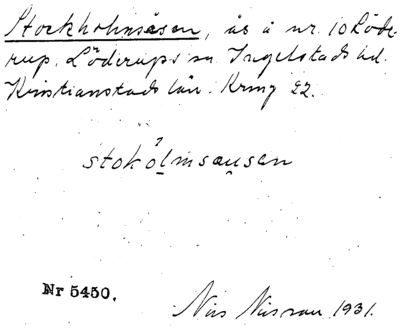 Stockholmsåsen, ås å nr. 10 Löde-
rup. Löderups sn Ingelstads hd.
Kristianstads län. Kring 22.
stokólmsau̯sen
Nr 5450.
Nils Nilsson 1931.